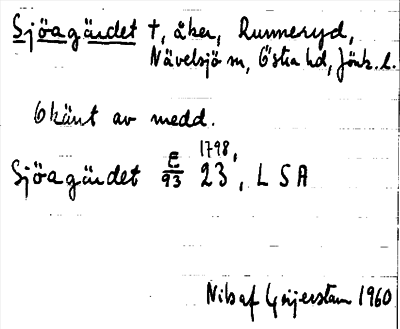 Sjöagärdet †, åker, Runneryd,
Nävelsjö sn, Östra hd, Jönk. l.
Okänt av medd.
Sjöagärdet E/93 23, 1798, L S A
Nils af Geijerstam 1960